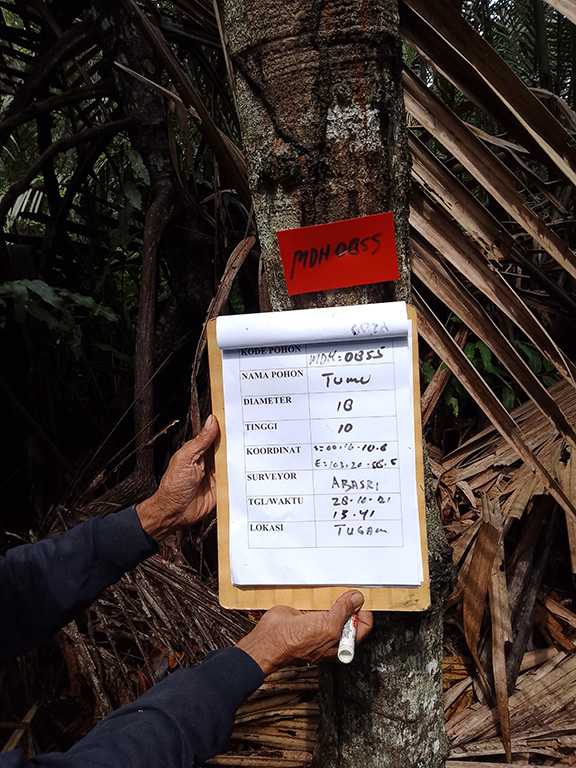 MDH 0855
KODE POHON MDH: 0855
NAMA POHON Tumu
DIAMETER 18
TINGGI 10
KOORDINAT S=00.16.10.8
E=103.20.58.5
SURVEYOR ABASRI
TGL/WAKTU 28-10-21
13.41
LOKASI